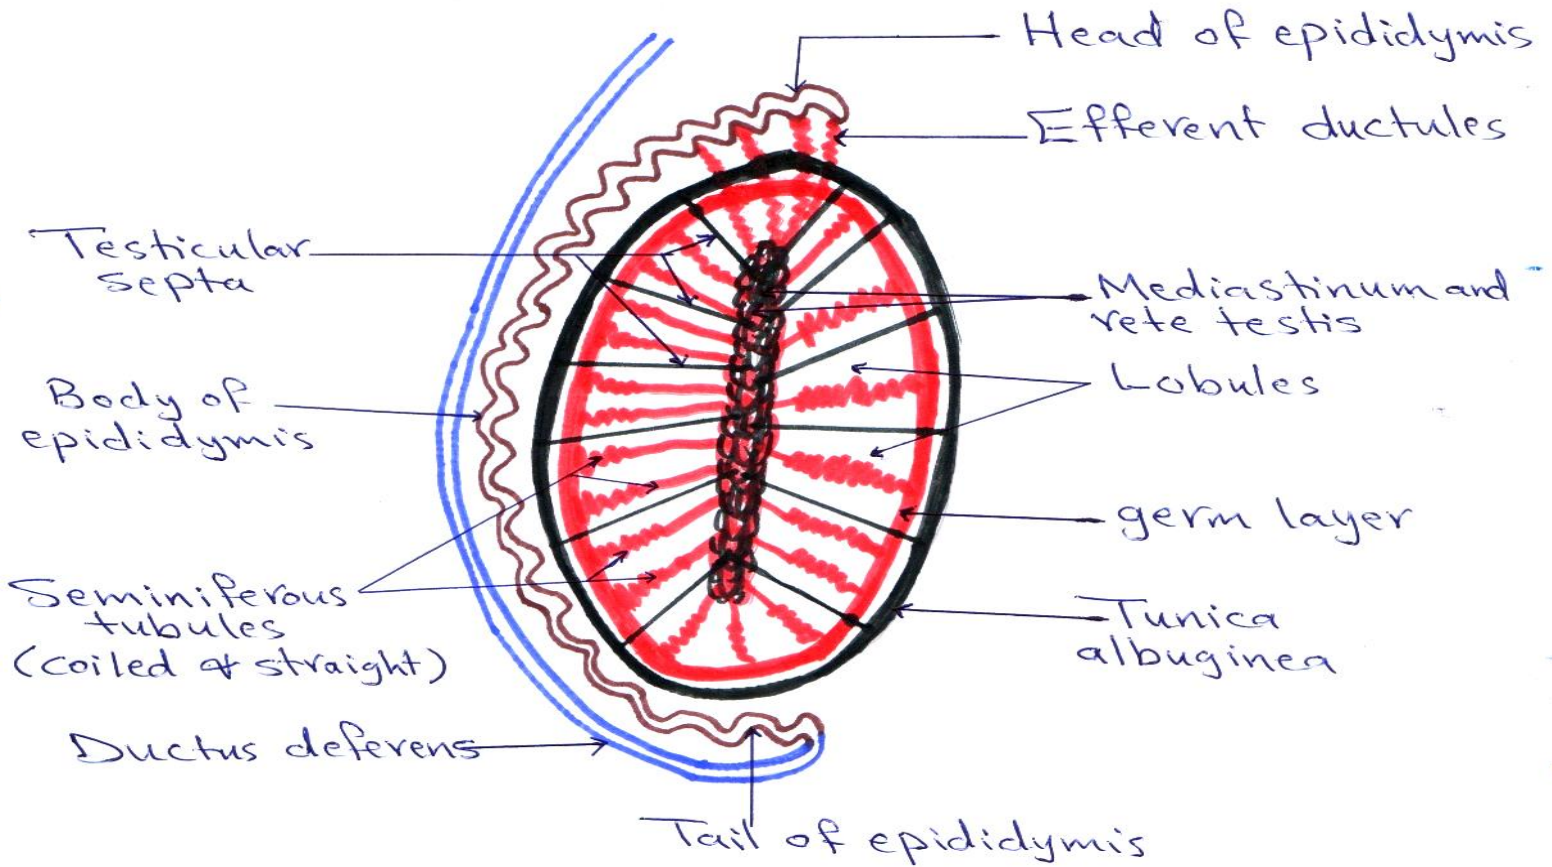 Head of epididymis
Efferent ductules
Testicular
septa
Mediastinum and
rete testis
Lobules
Body of
epididymis
germ layer
Seminiferous
tubules
(coiled & straight)
Tunica
albuginea
Ductus deferens
Tail of epididymis